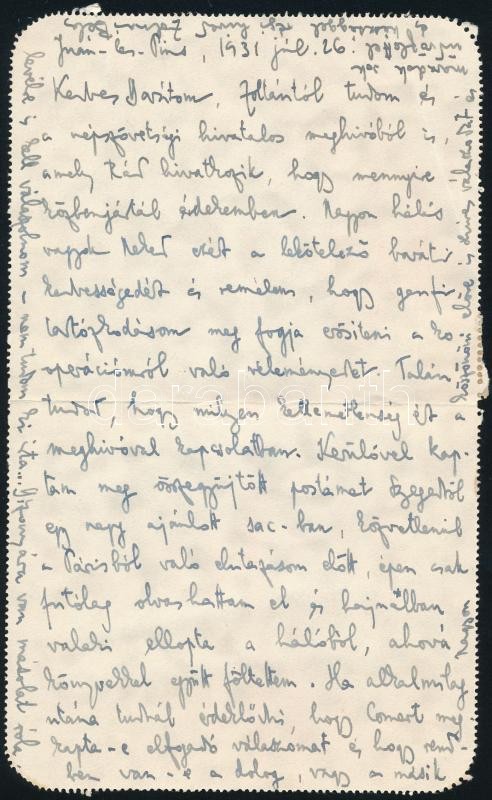 Juan-les-Pins, 1931 júl. 26.
Kedves Barátom, Zoltántól tudom és
a népszövetségi hivatalos meghivóból is,
amely Rád hivatkozik, hogy mennyire
közbenjártál érdekemben. Nagyon hálás
vagyok Neked ezért a lekötelező baráti
kedvességedért és remélem, hogy genfi
tartózkodásom meg fogja erősiteni a ko-
operációmról való véleményedet. Talán
tudod, hogy milyen kellemetlenség ért a
meghivóval kapcsolatban. Kerülővel kap-
tam meg összegyüjtött postámat Szegedről
egy nagy ajánlott sac-ban, közvetlenül
a Párisból való elutazásom előtt, épen csak
futólag olvashattam el és hajnalban
valaki ellopta a hálóból, ahová
könyvekkel együtt föltettem. Ha alkalmilag
utána tudnál érdeklődni hogy Comert meg
kapta-e elfogadó válaszomat és hogy rend-
ben van-e a dolog, vagy a másik
levélre is kell válaszolnom – nem tudom ki írta...
van másolat róla
előre is szives válaszodat
maradok sok
üdvözlettel
darabanth